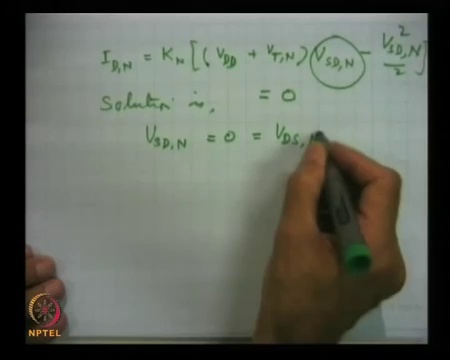 I_D,N = K_N [(V_DD + V_T,N) V_SD,N - V²_SD,N / 2]
Solution is, = 0
V_SD,N = 0 = V_DS,
NPTEL